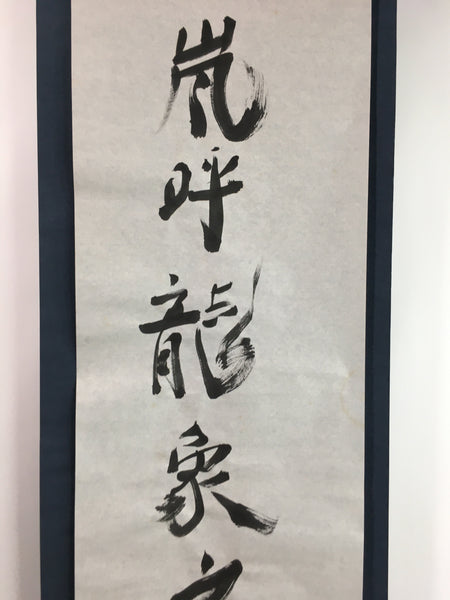 嵐呼龍象